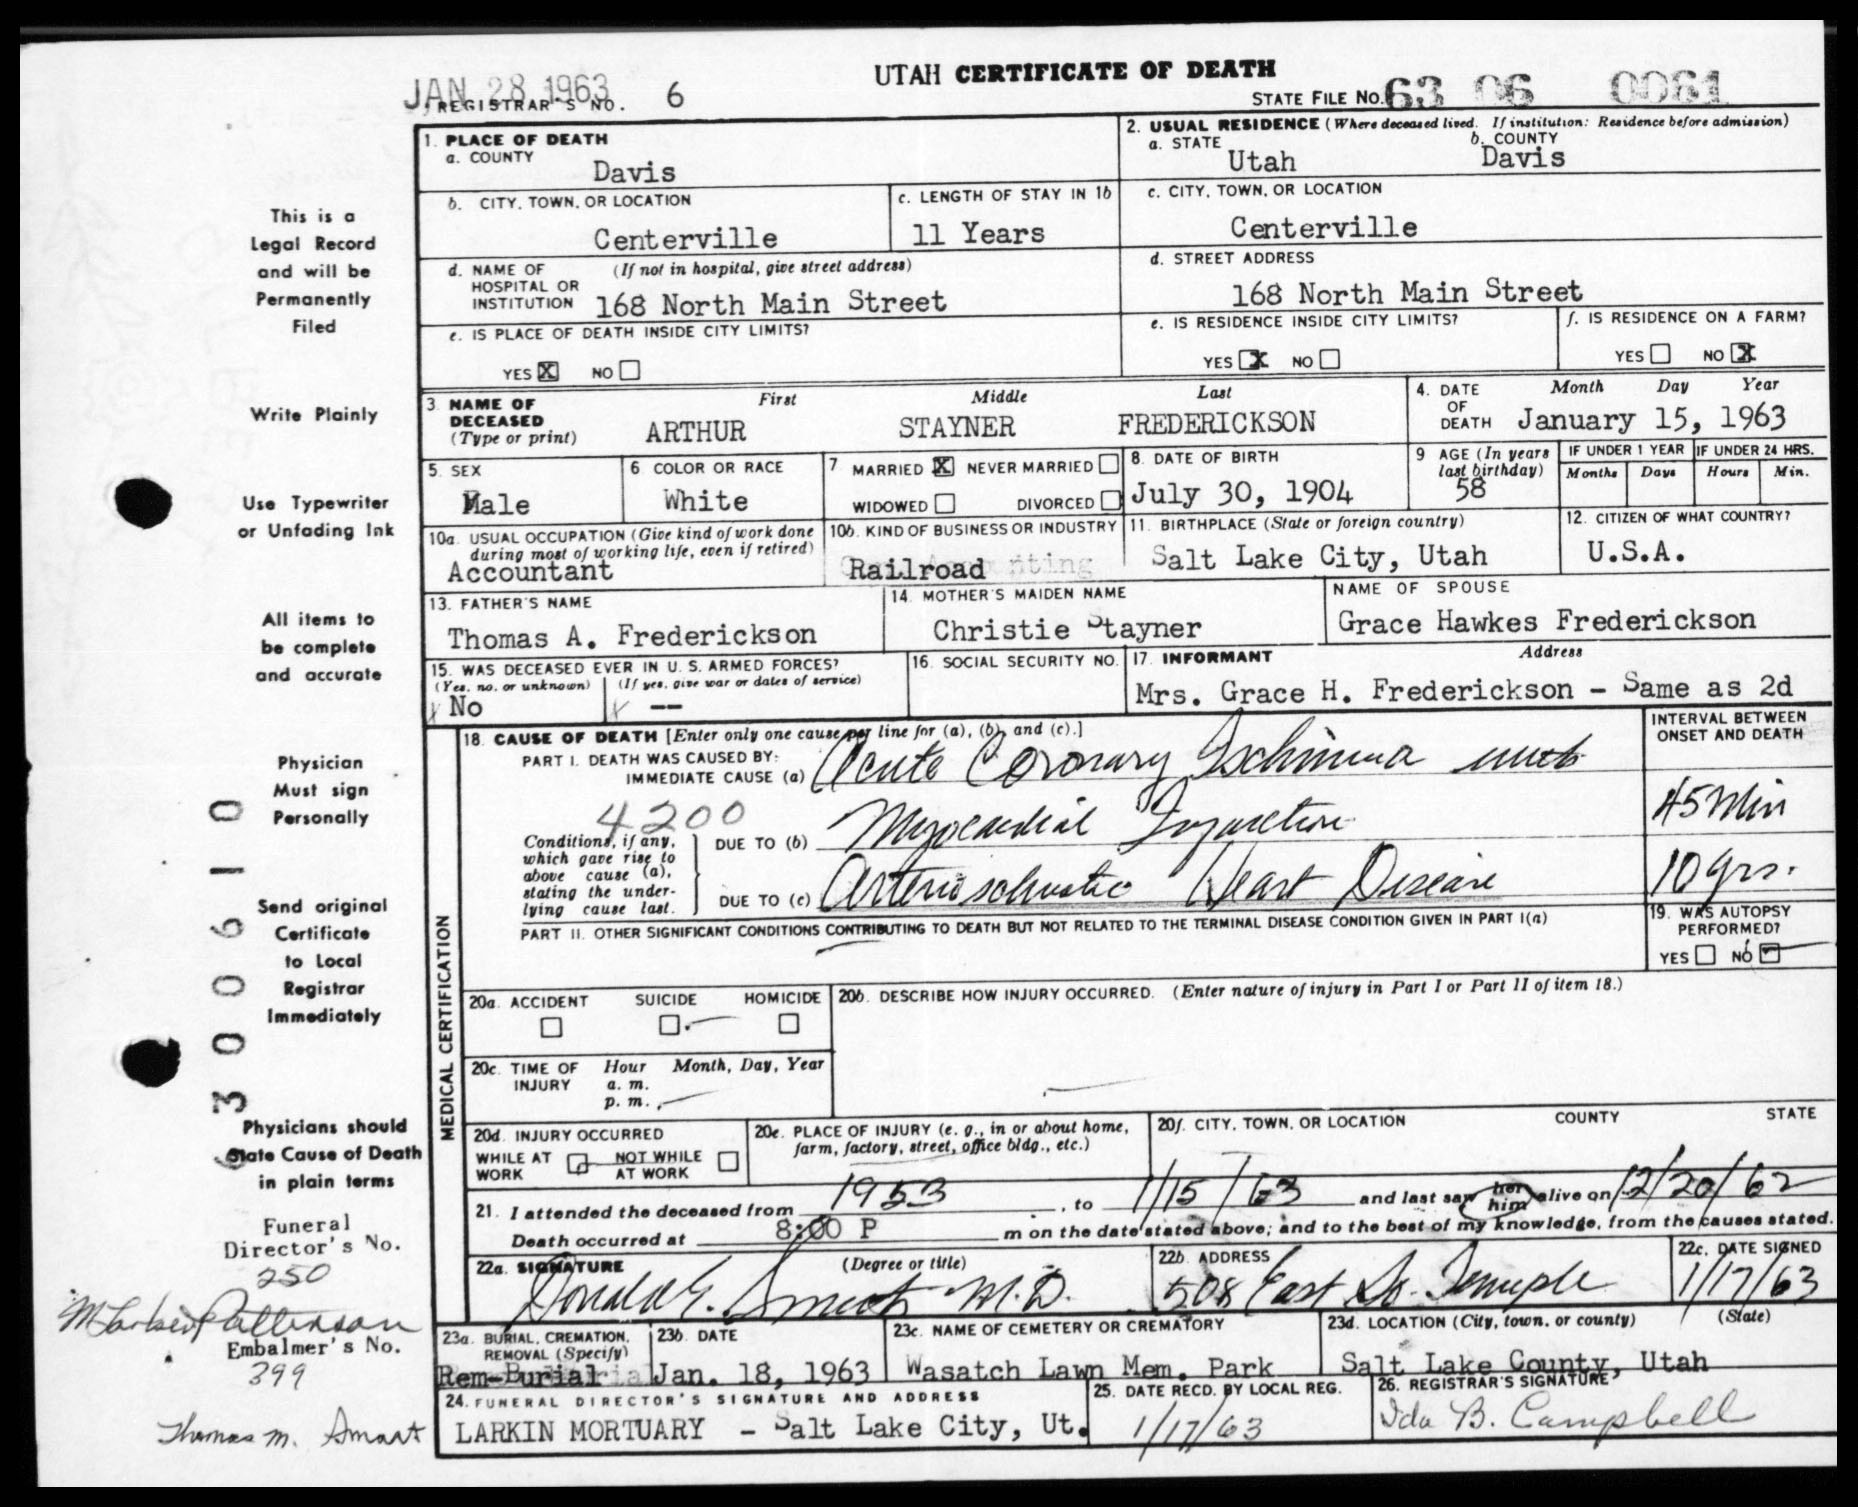 UTAH CERTIFICATE OF DEATH
JAN 28 1963
REGISTRAR'S NO. 6
STATE FILE NO. 63 06 0061
1. PLACE OF DEATH
a. COUNTY
Davis
2. USUAL RESIDENCE (Where deceased lived. If institution: Residence before admission)
a. STATE b. COUNTY
Utah Davis
b. CITY, TOWN, OR LOCATION
Centerville
c. LENGTH OF STAY IN 1b
11 Years
c. CITY, TOWN, OR LOCATION
Centerville
d. NAME OF HOSPITAL OR INSTITUTION (If not in hospital, give street address)
168 North Main Street
d. STREET ADDRESS
168 North Main Street
e. IS PLACE OF DEATH INSIDE CITY LIMITS?
YES X NO
e. IS RESIDENCE INSIDE CITY LIMITS?
YES X NO
f. IS RESIDENCE ON A FARM?
YES NO X
3. NAME OF DECEASED (Type or print)
First Middle Last
ARTHUR STAYNER FREDERICKSON
4. DATE OF DEATH Month Day Year
January 15, 1963
5. SEX
Male
6 COLOR OR RACE
White
7 MARRIED X NEVER MARRIED
WIDOWED DIVORCED
8. DATE OF BIRTH
July 30, 1904
9 AGE (In years last birthday)
58
IF UNDER 1 YEAR IF UNDER 24 HRS.
Months Days Hours Min.
10a. USUAL OCCUPATION (Give kind of work done during most of working life, even if retired)
Accountant
10b. KIND OF BUSINESS OR INDUSTRY
Railroad
11. BIRTHPLACE (State or foreign country)
Salt Lake City, Utah
12. CITIZEN OF WHAT COUNTRY?
U.S.A.
13. FATHER'S NAME
Thomas A. Frederickson
14. MOTHER'S MAIDEN NAME
Christie Stayner
NAME OF SPOUSE
Grace Hawkes Frederickson
15. WAS DECEASED EVER IN U. S. ARMED FORCES?
(Yes, no, or unknown) (If yes, give war or dates of service)
No --
16. SOCIAL SECURITY NO.
17. INFORMANT Address
Mrs. Grace H. Frederickson - Same as 2d
MEDICAL CERTIFICATION
18. CAUSE OF DEATH [Enter only one cause per line for (a), (b), and (c).]
INTERVAL BETWEEN ONSET AND DEATH
PART I. DEATH WAS CAUSED BY:
IMMEDIATE CAUSE (a) Acute Coronary Ischimia with
4200
Conditions, if any, which gave rise to above cause (a), stating the underlying cause last.
DUE TO (b) Myocardial Infarction
45 Min
DUE TO (c) Arteriosclerotic Heart Disease
10 yrs.
PART II. OTHER SIGNIFICANT CONDITIONS CONTRIBUTING TO DEATH BUT NOT RELATED TO THE TERMINAL DISEASE CONDITION GIVEN IN PART I(a)
19. WAS AUTOPSY PERFORMED?
YES NO
20a. ACCIDENT SUICIDE HOMICIDE
20b. DESCRIBE HOW INJURY OCCURRED. (Enter nature of injury in Part I or Part II of item 18.)
20c. TIME OF INJURY Hour Month, Day, Year
a. m.
p. m.
20d. INJURY OCCURRED
WHILE AT WORK NOT WHILE AT WORK
20e. PLACE OF INJURY (e. g., in or about home, farm, factory, street, office bldg., etc.)
20f. CITY, TOWN, OR LOCATION COUNTY STATE
21. I attended the deceased from 1953, to 1/15/63 and last saw her him alive on 12/20/62
Death occurred at 8:00 P m on the date stated above; and to the best of my knowledge, from the causes stated.
22a. SIGNATURE (Degree or title)
Donald E. Smith M.D.
22b. ADDRESS
508 East So. Temple
22c. DATE SIGNED
1/17/63
23a. BURIAL, CREMATION, REMOVAL (Specify)
Rem-Burial
23b. DATE
Jan. 18, 1963
23c. NAME OF CEMETERY OR CREMATORY
Wasatch Lawn Mem. Park
23d. LOCATION (City, town, or county) (State)
Salt Lake County, Utah
24. FUNERAL DIRECTOR'S SIGNATURE AND ADDRESS
LARKIN MORTUARY - Salt Lake City, Ut.
25. DATE RECD. BY LOCAL REG.
1/17/63
26. REGISTRAR'S SIGNATURE
Ida B. Campbell
This is a
Legal Record
and will be
Permanently
Filed
Write Plainly
Use Typewriter
or Unfading Ink
All items to
be complete
and accurate
Physician
Must sign
Personally
Send original
Certificate
to Local
Registrar
Immediately
Physicians should
State Cause of Death
in plain terms
6300610
Funeral
Director's No.
250
Patterson
Embalmer's No.
399
Thomas M. Smart